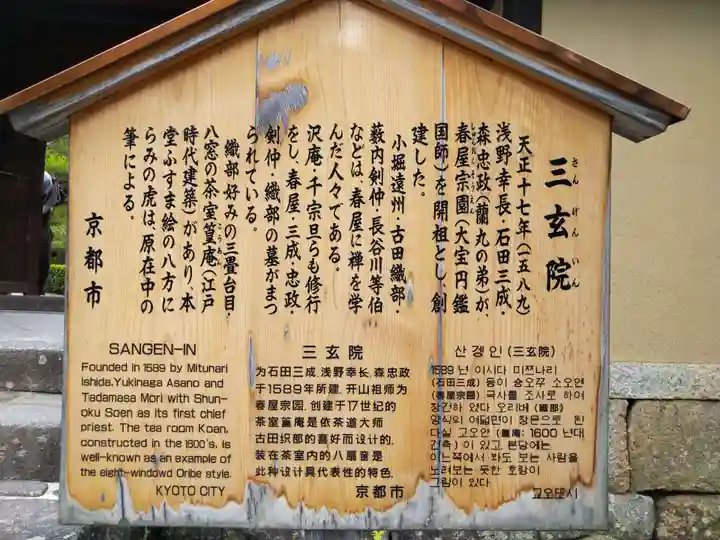 三玄院
さんげんいん
天正十七年(一五八九)
浅野幸長・石田三成・
森忠政(蘭丸の弟)が、
春屋宗園(大宝円鑑
しゅんおくそうえん
国師)を開祖とし、創
建した。
小堀遠州・古田織部・
藪内剣仲・長谷川等伯
などは、春屋に禅を学
んだ人々である。
沢庵・千宗旦らも修行
をし、春屋・三成・忠政・
剣仲・織部の墓がまつ
られている。
織部好みの三畳台目・
八窓の茶室篁庵(江戸
こうあん
時代建築)があり、本
堂ふすま絵の八方に
らみの虎は、原在中の
筆による。
京都市
SANGEN-IN
Founded in 1589 by Mitunari
Ishida,Yukinaga Asano and
Tadamasa Mori with Shun-
oku Soen as its first chief
priest. The tea room Koan,
constructed in the 1600's, is
well-known as an example of
the eight-windowd Oribe style.
KYOTO CITY
三玄院
为石田三成,浅野幸长,森忠政
于1589年所建,开山祖师为
春屋宗园,创建于17世纪的
茶室篁庵是依茶道大师
古田织部的喜好而设计的,
装在茶室内的八扇窗是
此种设计具代表性的特色.
京都市
산겡인 (三玄院)
1589년 이시다 미쯔나리
(石田三成) 등이 슝오꾸 소오엔
(春屋宗園) 국사를 조사로 하여
창건하였다. 오리베 (織部)
양식의 여덟면이 창문으로 된
다실 고오안 (篁庵: 1600년대
건축)이 있고, 본당에는
어느쪽에서 봐도 보는 사람을
노려보는 듯한 호랑이
그림이 있다.
교오또시